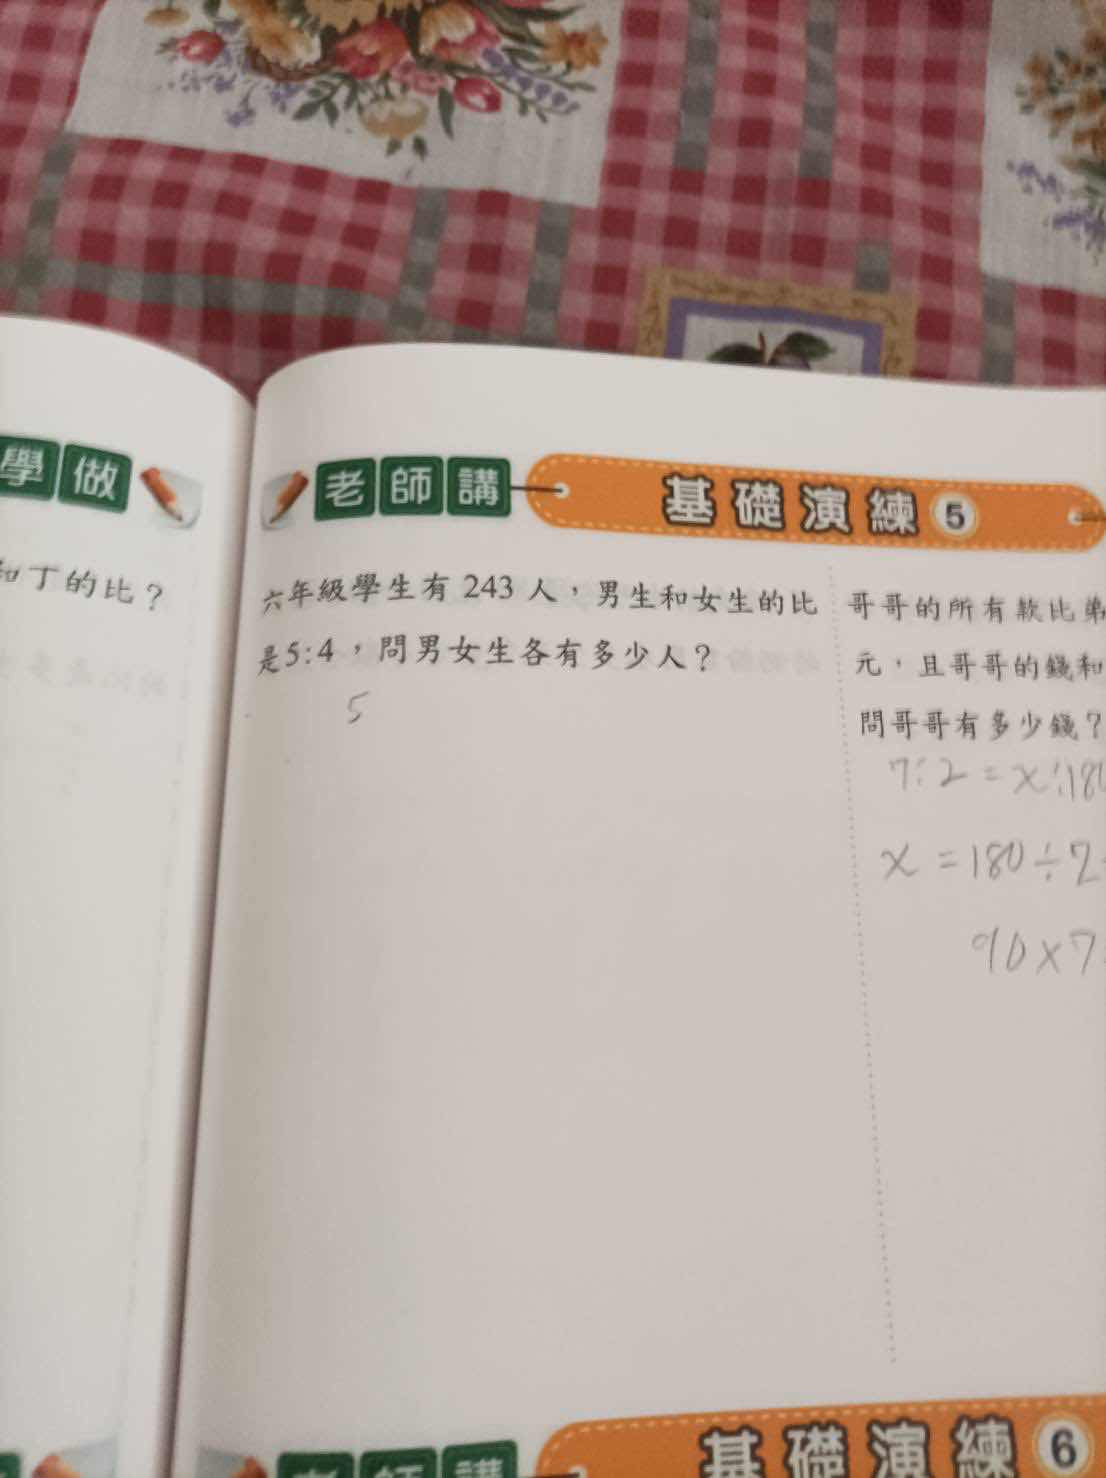 學做
丁的比?
老師講
基礎演練5
六年級學生有243人,男生和女生的比
是5:4,問男女生各有多少人?
5
哥哥的所有款比弟
元,且哥哥的錢和
問哥哥有多少錢?
7:2=x:180
x=180÷2
90×7
基礎演練6